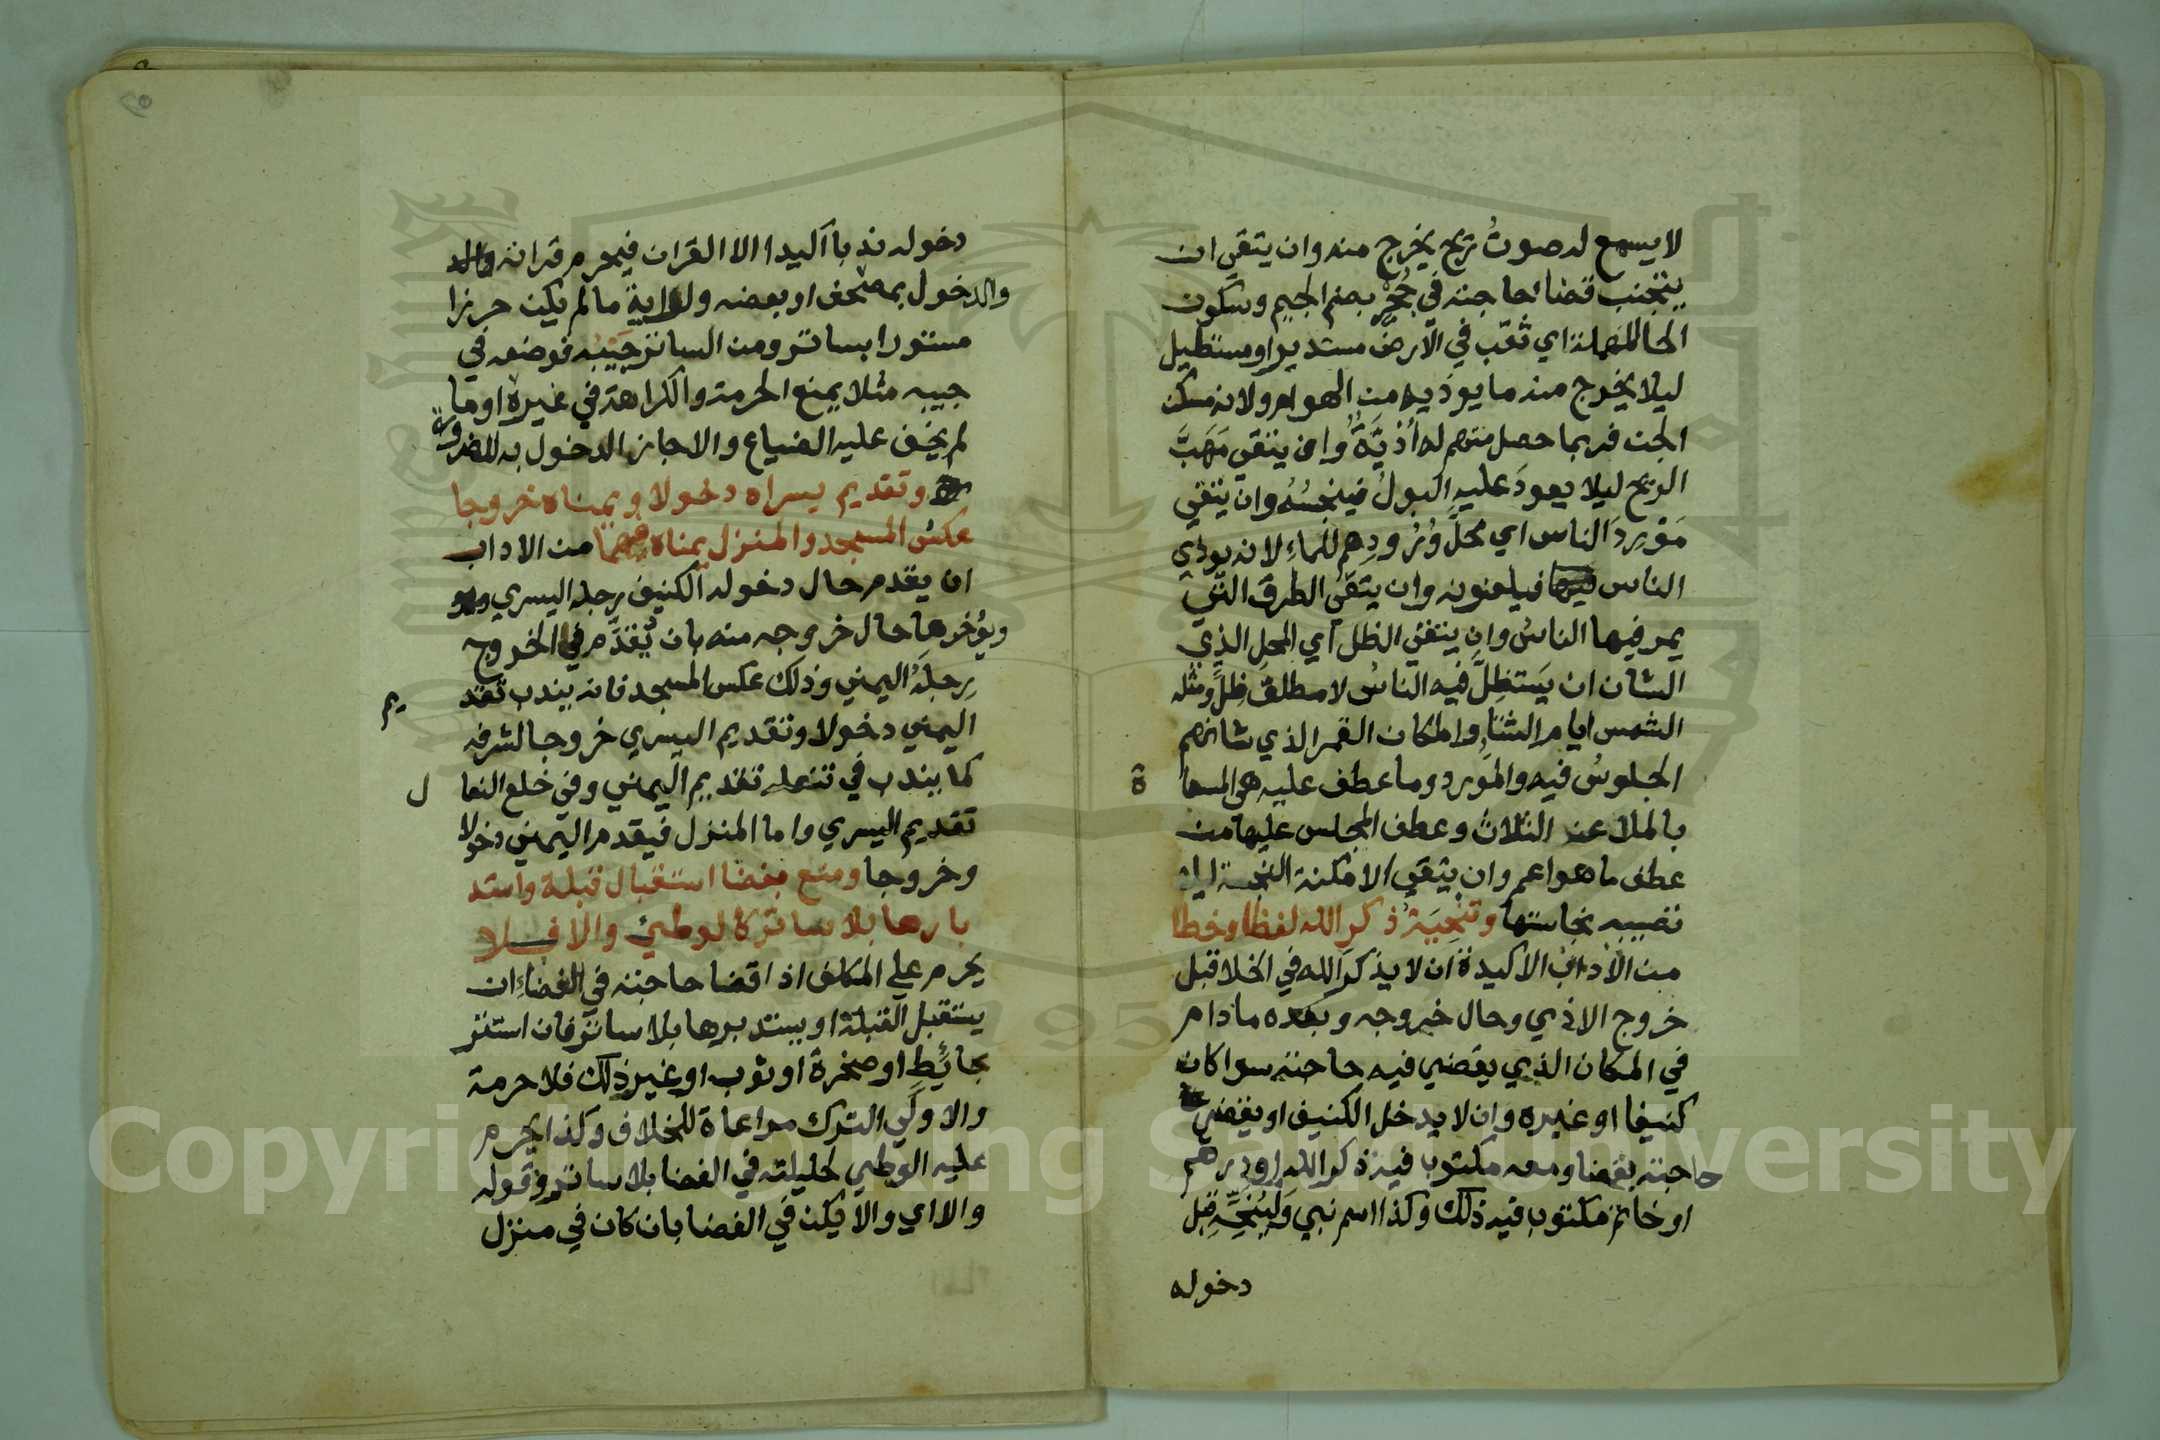 لا يسمع له صوت ريح يخرج منه وان يتقي ان
يتجنب قضا احاجته في جُحْرٍ بضم الجيم وسكون
الحا المهملة اي ثقب في الارض مستديرا ومستطيل
ليلا يخرج منه ما يوذيه من الهوام ولانه مسكن
الجن فربما حصل منهم له أذيَّةٌ وان يتقي مَهَبَّ
الريح ليلا يعودَ عليهِ البولُ فينجسُهُ وان يتقي
مَوْرِدَ الناس اي محلَّ وُرُودِهم للماءِ لانه يوذي
الناس فيلعنونه وان يتقي الطرق التي
يمر فيها الناسُ وان يتقي الظل اي المحل الذي
الشان ان يَستظِلَّ فيه الناسُ لا مطلق ظِلٍّ ومثله
الشمس ايام الشتا والمكان القمر الذي شانهم
الجلوسُ فيه والمَورد وما عطف عليه هي المسما ة
بالملاعن الثلاث وعطف المجلس عليها من
عطف ما هو اعم وان يتقي الامكنة النجسة ليلا
تصيبه نجاستها وتنْحِيَةُ ذكرِ الله لفظا وخطا
من الآداب الاكيدة ان لا يذكر الله في الخلا قبل
خروج الاذي وحال خروجه وبعده ما دام
في المكان الذي يقضي فيه حاجته سوا كان
كنيفا او غيره وان لا يدخل الكنيف او يقضي
حاجته بفضا ومعه مكتوب فيه ذكر الله او درهم
او خاتم مكتوب فيه ذلك وكذا اسم نبي وَليُنَحِّهِ قبل
دخوله
دخوله ندبا اكيدا الا القران فيحرم قراته
والدخول بمصحف او بعضه ولو اية ما لم يكن حرزا
مستورا بساتر ومن الساتر جَيْبُه فوضعه في
جيبه مثلا يمنع الحرمة والكراهة في غيره او ما
لم يخف عليه الضياع والا جاز الدخول به للضرورة
وتقديم يسراه دخولا ويمناه خروجا
عكسُ المسجد والمنزل يمناه فيهما من الاداب
ان يقدم حال دخوله الكنيف رجله اليسري
ويؤخرها حال خروجه منه بان يُقدَّم في الخروج
رِجلَهُ اليمني وذلك عكس المسجد فانه يندب تقد يم
اليمني دخولا وتقديم اليسري خروجا لشرفه
كما يندب في تنعله تقديم اليمني وفي خلع النعا ل
تقديم اليسري واما المنزل فيقدم اليمني دخولا
وخروجا ومنع بفضا استقبال قبلة واستد
بارها بلا ساتر كالوطيء والا فلا
يحرم علي المكلف اذا قضا حاجته في الفضاءِ ان
يستقبل القبلة او يستدبرها بلا ساتر فان استتر
بحائِطٍ او صخرة او ثوب او غير ذلك فلا حرمة
والاولَي الترك مراعاة للخلاف وكذا يحرم
عليه الوطي لحليلته في الفضا بلا ساتر وقوله
والا اي والا يكن في الفضا بان كان في منزل
Copyright © King Saud University